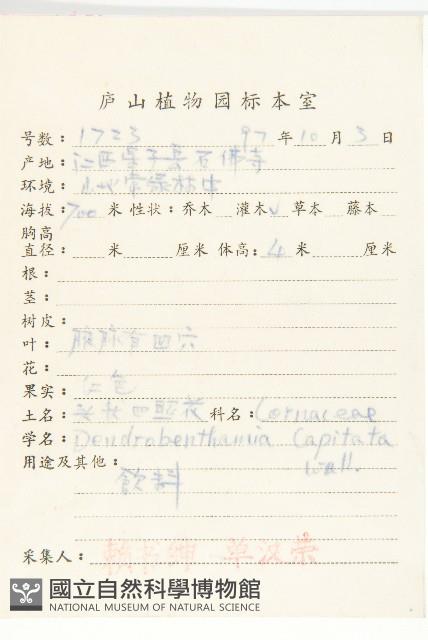 庐山植物园标本室
号数: 1723 97年10月3日
产地: 江西星子县石佛寺
环境: 山地常绿林中
海拔: 700米 性状: 乔木 灌木√ 草本 藤本
胸高
直径: 米 厘米 体高: 4米 厘米
根:
茎:
树皮:
叶: 腋脉有凹穴
花:
果实: 红色
土名: 头状四照花 科名: Cornaceae
学名: Dendrobenthamia Capitata
用途及其他: Wall.
飲料
采集人: 賴书紳 单汉荣
國立自然科學博物館
NATIONAL MUSEUM OF NATURAL SCIENCE